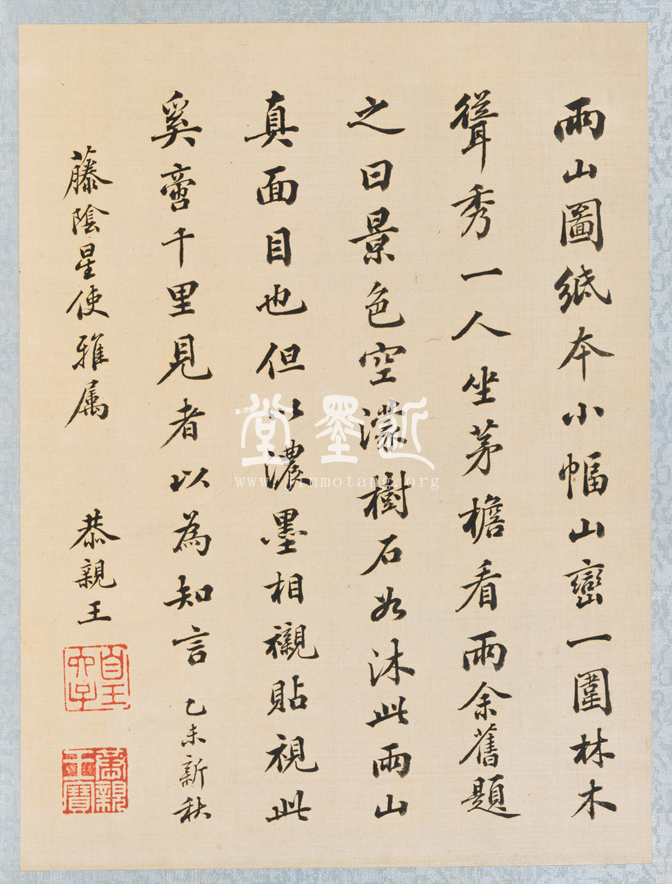 雨山圖紙本小幅山巒一圍林木
聳秀一人坐茅檐看雨余舊題
之曰景色空濛樹石如沐此雨山
真面目也但以濃墨相襯貼視此
奚啻千里見者以為知言 乙未新秋
藤陰星使雅属 恭親王
近墨堂
www.jinmotang.org